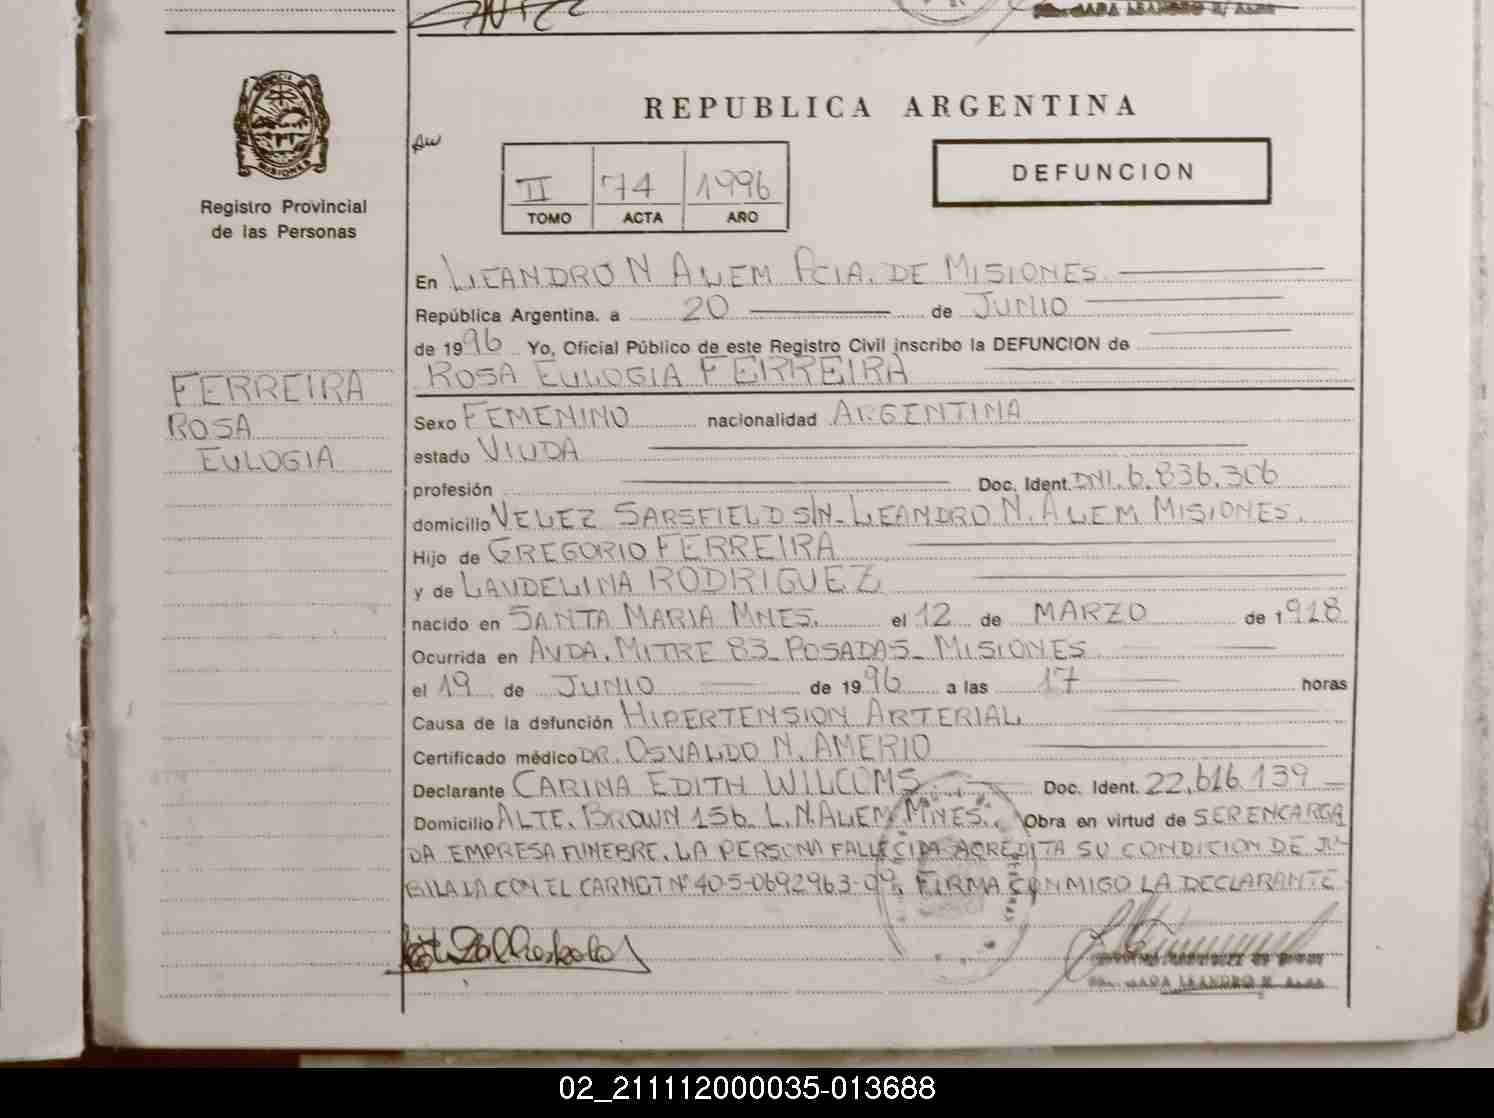 REPUBLICA ARGENTINA
MISIONES
Registro Provincial
de las Personas
II 74 1996
TOMO ACTA AÑO
DEFUNCION
En LEANDRO N ALEM PCIA. DE MISIONES
República Argentina, a 20 de JUNIO
de 1996 Yo, Oficial Público de este Registro Civil inscribo la DEFUNCION de
ROSA EULOGIA FERREIRA
FERREIRA
ROSA
EULOGIA
Sexo FEMENINO nacionalidad ARGENTINA
estado VIUDA
profesión Doc. Ident. DNI. 6.836.306
domicilio VELEZ SARSFIELD S/N- LEANDRO N. ALEM MISIONES.
Hijo de GREGORIO FERREIRA
y de LAUDELINA RODRIGUEZ
nacido en SANTA MARIA MNES. el 12 de MARZO de 1928
Ocurrida en AVDA. MITRE 83- POSADAS- MISIONES
el 19 de JUNIO de 1996 a las 17 horas
Causa de la defunción HIPERTENSION ARTERIAL
Certificado médico DR. OSVALDO N. AMERIO
Declarante CARINA EDITH WILCOMS Doc. Ident. 22.616.139
Domicilio ALTE. BROWN 156- L.N.ALEM MNES. Obra en virtud de SER ENCARGA
DA EMPRESA FUNEBRE. LA PERSONA FALLECIDA ACREDITA SU CONDICION DE JU
BILADA CON EL CARNET Nº 40-5-0692963-0 FIRMA CONMIGO LA DECLARANTE
LEANDRO N. ALEM
02_211112000035-013688